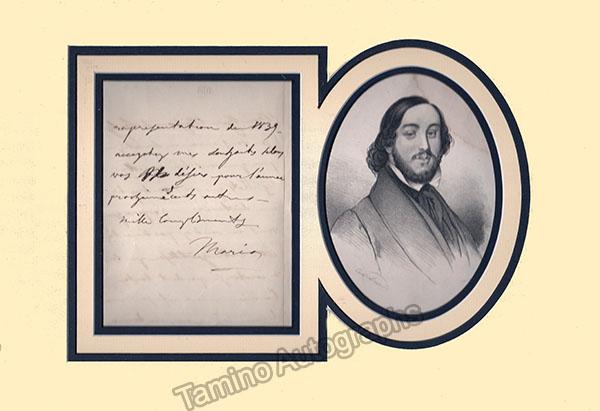 représentation de 1839.
acceptez mes souhaits selon
vos désirs pour l'année
prochaine et autres
mille compliments
Mario
Tamino Autographs